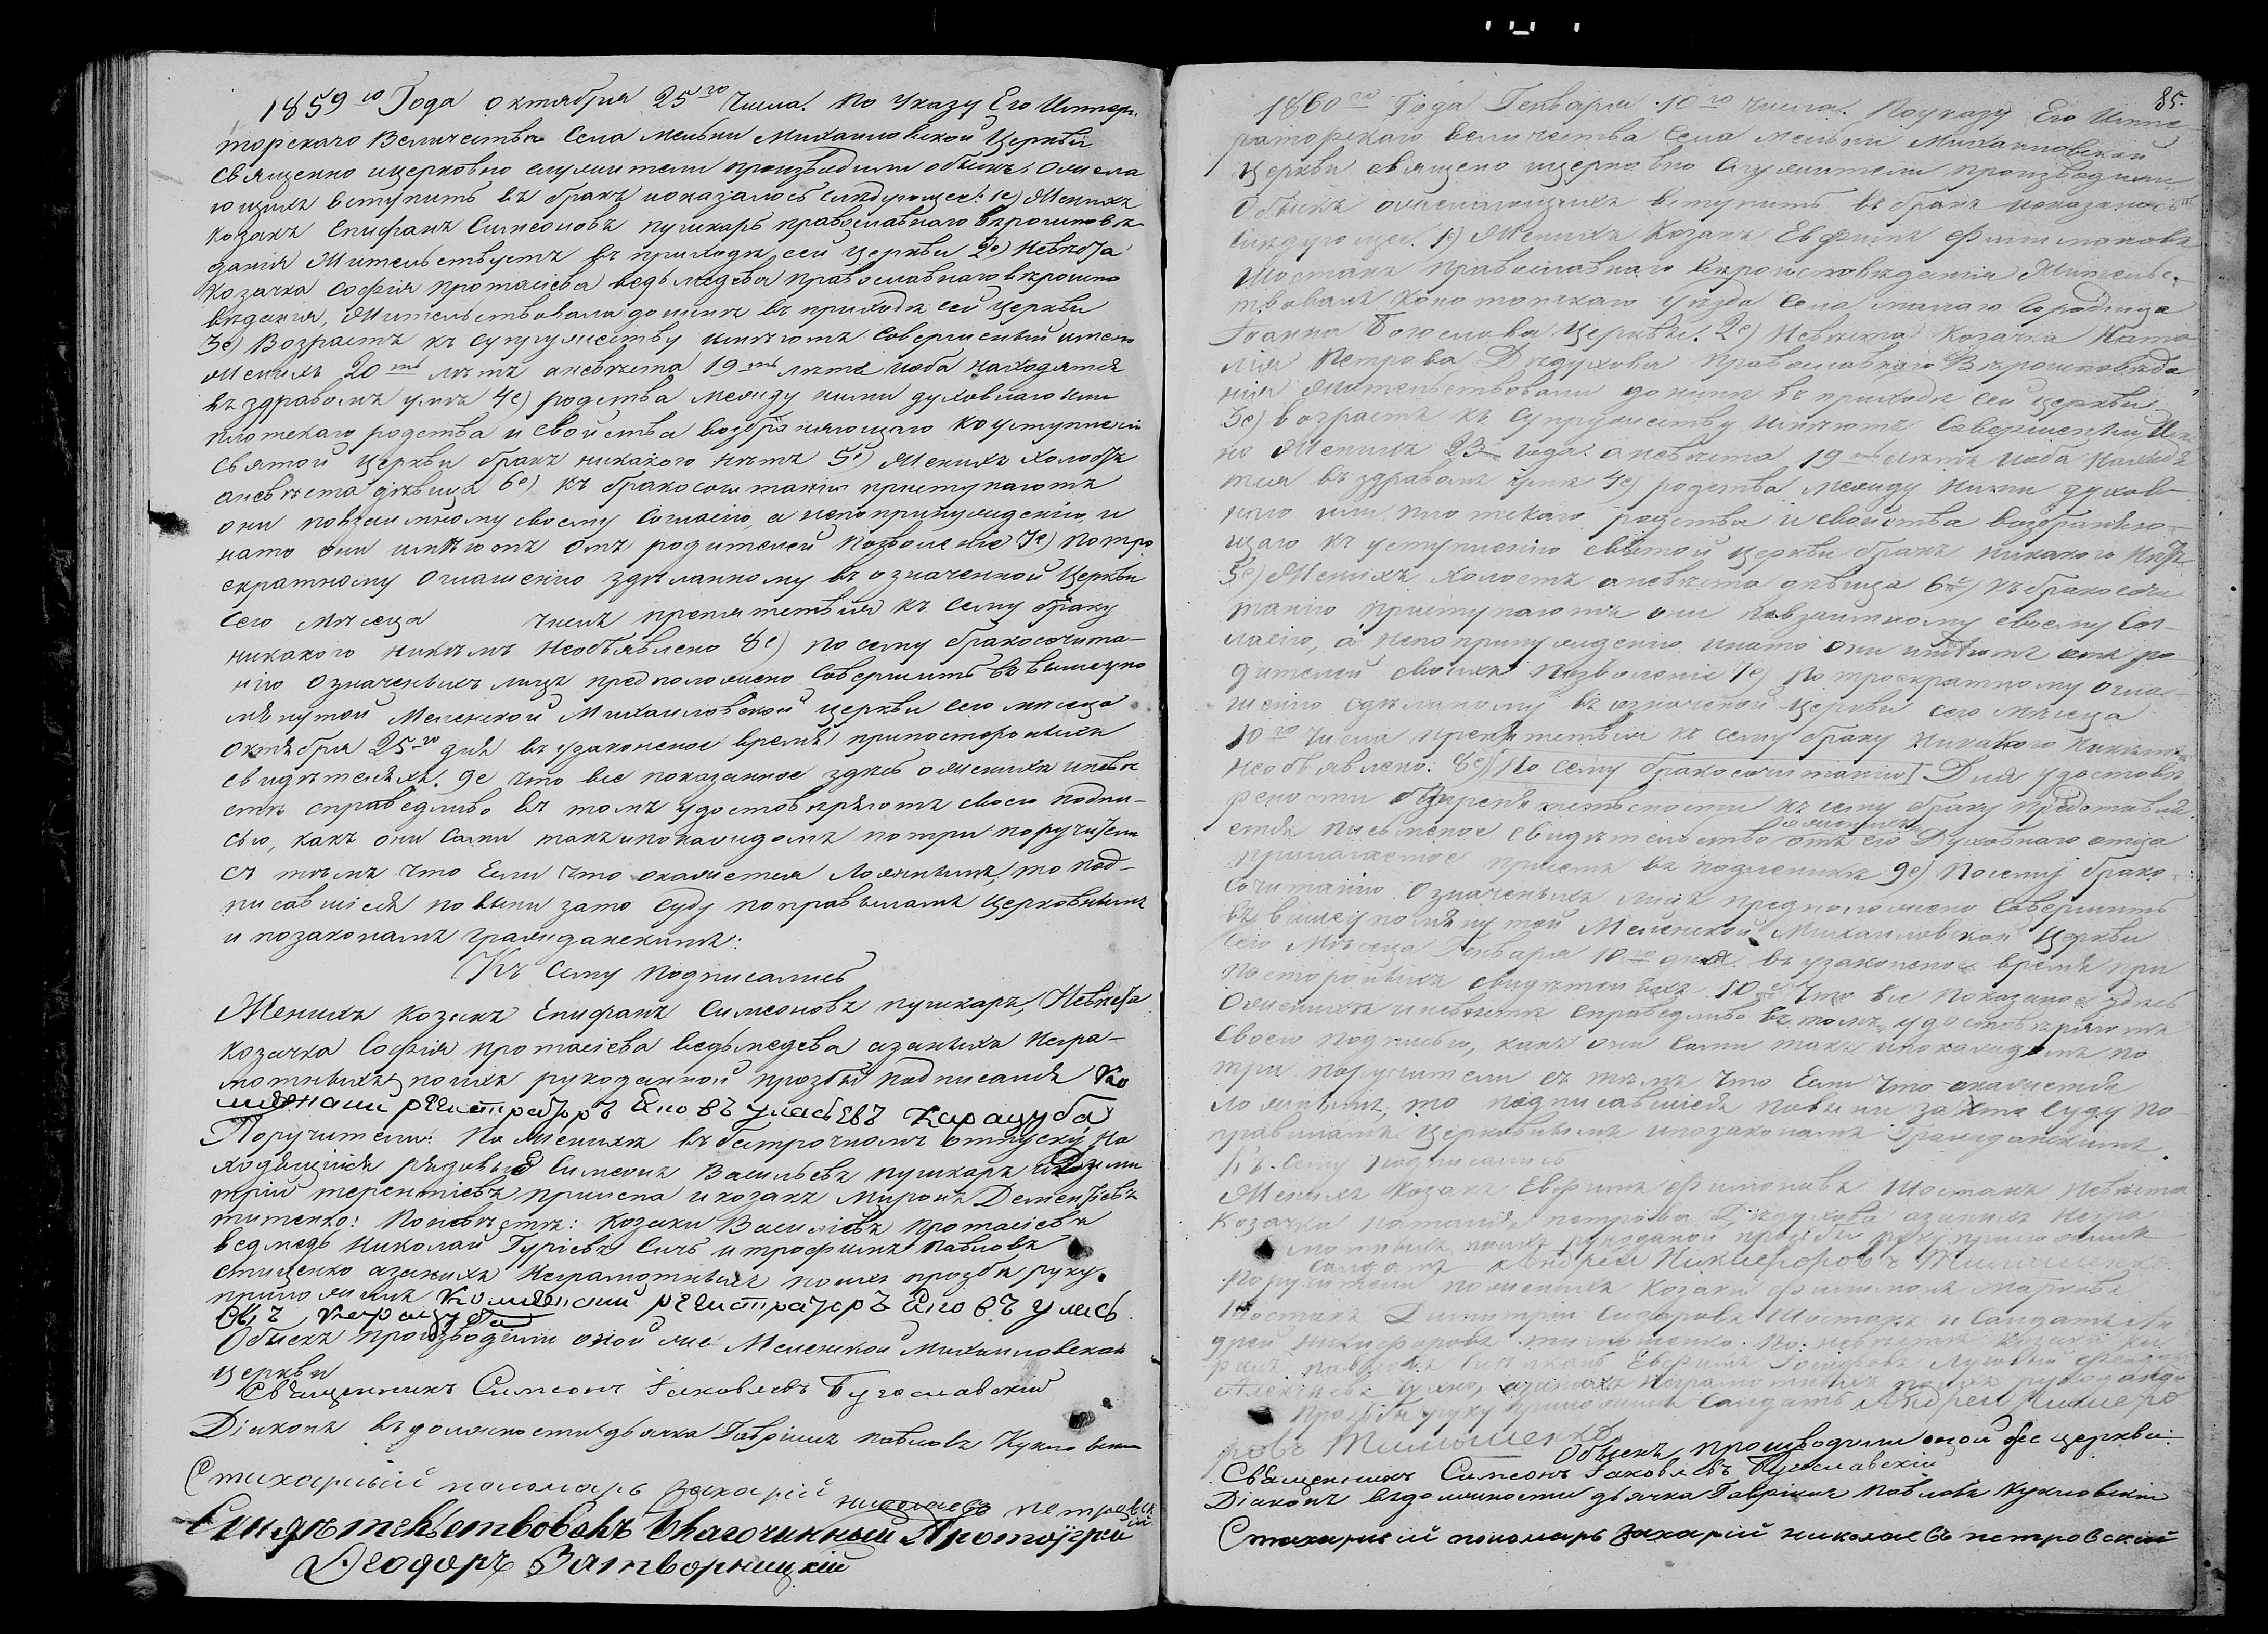 1859го Года Октября 25го Числа. По Указу Его Импера-
торскаго Величества Села Мельни Михаиловской Церкви
священно ицерковно служители произъводили обыскъ ожела
ющихъ вступить въ бракъ ипоказалось слѣдующее: 1е) Женихъ
козакъ Епифанъ Симеоновъ пушкарь православнаго вѣроисповѣ-
данія Жительствуетъ въ приходѣ сей Церкви 2е) Невѣста
козачка Софія протасіева ведьмедева православнаго вѣроиспо
вѣданія, Жительствовала донынѣ въ приходѣ сей Церкви
3е) Возрастъ къ супружеству имѣютъ Совершенный имено
Женихъ 20ть лѣтъ аневѣста 19ть лѣтъ иоба находятся
въ здравомъ умѣ 4е) родства между ними духовнаго или
плотскаго родства и свойства возбраняющаго
святой Церкви бракъ никакого нѣтъ 5е) Женихъ холостъ
аневѣста дѣвица 6е) къ бракосочитанію приступаютъ
они повзаимному своему Согласію, а непопринужденію, и
нато они имѣютъ отъ родителей позволеніе 7е) Потро
екратному Оглашенію здѣланному въ означенной Церкви
Сего Мѣсяца числѣ препятствія къ сему браку
никакого никѣмъ необъявлено 8е) по сему бракосочита-
нію Означеныхъ лицъ предположено Совершить въ вышеупо
мѣнутой Меленской Михаиловской Церкви сего мѣсяца
октября 25го дня въ узаконеное время припостороннихъ
свидѣтеляхъ. 9е Что все показанное здѣсь о женихѣ иневѣ
стѣ справедливо въ томъ удостовѣряютъ своею подпи-
сью, какъ они сами такъ ипокаждомъ потри поручители
съ тѣмъ что Если что окажется ложнымъ, то под-
писавшіеся повыны зато суду поправиламъ Церковнымъ
и позаконамъ гражданскимъ:
Къ Сему подписались
Женихъ козакъ Епифанъ Симеоновъ пушкаръ, Невѣста
козачка Софія протасіева ведьмедева азаныхъ Негра-
мотныхъ поихъ рукоданной прозьбы подписался Ко
лежский регистраторъ Яковъ уласьевъ Карацуба
Поручители: По Женихѣ въ безсрочномъ отпуску На
ходящійся рядовый Симеонъ Васильевъ пушкаръ
трій терентіевъ примепа икозакъ Миронъ Дементьевъ
титенко: Поневѣстѣ: козаки Василій протасіевъ
ведмедь Николай Гуріевъ Сичь итрофимъ Павловъ
стиценко азаныхъ Неграмотныхъ поихъ прозбы руку
приложилъ Колежский регистраторъ Яковъ улась
евъ Карацуба
Обыскъ производили оной же Меленской Михаиловской
церкви
Священникъ Симеонъ Іаковлевъ Бугославский
Діаконъ въдолжности дьячка Гавріилъ павловъ
Стихарный пономарь Захарій николаевъ петровскій
Свидѣтельствовалъ Благочинный Протоіерей
Ѳеодоръ Затворницкій
85.
1860го Года Генваря 10го числа. Поуказу Его Импе-
раторскаго величества Села мельни Михаиловской
Церкви священо ицерковно Служители производили
Обыскъ ожелающихъ вступить въ бракъ ипоказалось
Слѣдующее. 1е) Женихъ Козакъ Евфимъ Филимоновъ
Шостакъ православнаго вѣроисповѣданія Жительс-
твовалъ Конотопскаго уѣзда Села малаго Городища
Іоанна Богослова Церкви. 2е) Невѣста Козачка Ната
лія Петрова Дѣдухова Православнаго Вѣроисповѣда
нія жительствовали донынѣ въ приходѣ сей церкви
3е) возрастъ къ супружеству имѣютъ Совершенный Име
но Женихъ 23 года аневѣста 19ть лѣтъ иоба находя
тся въ здравомъ умѣ 4е) родства между ними духов-
наго или плотскаго родства и свойства возбраняю-
щаго къ уступленію святой церкви бракъ никакого нѣтъ
5е) Женихъ холостъ аневѣста дѣвица 6е) къ бракосочи
танію приступаютъ они повзаимному своему Сог-
ласію, а непопринужденію инато они имѣютъ отъ ро
дителей своихъ позволеніе 7е) По троекратному огла-
шенію сдѣланному въ означеной церкви сего мѣсяца
10го числа препятствія къ сему браку никакого никѣмъ
необъявлено: 8е) [По сему бракосочитанію] Для удостовѣ
рености къ сему браку представля
ется письменое свидѣтельство отъ его Духовнаго отца
прилагаемое присемъ въ подленикѣ 9е) Посему брако-
сочитанію Означеныхъ лицъ предположено Совершить
въ вишеупомѣнутой Меленской Михаиловской Церкви
сего Мѣсяца Генваря 10го дня въ узаконеное время при
постороныхъ свидѣтеляхъ 10е Что все показаное здѣсь
Оженихѣ иневѣстѣ Справедливо въ томъ удостовѣряютъ
Своею подписью, какъ они Сами такъ ипокаждомъ по
три поручители съ тѣмъ что Если что окажется
ложнымъ, то подписавшіеся повыны за то Суду по
правиламъ Церковнымъ ипозаконамъ Гражданскимъ.
Къ Сему подписались
Женихъ Козакъ Евфимъ Филимоновъ Шостакъ Невѣста
Козачка Наталія петрова Дѣдухова азаныхъ Негра
мотныхъ поихъ рукоданой прозьбы руку приложилъ
Салдатъ Андрей Никифоровъ Тимошенко
Поручители поженихѣ Козаки Филимонъ Марковъ
Шостакъ Димитрій Сидоровъ Шостакъ и Салдатъ Ан
дрей Никифоровъ тимошенко. По невѣстѣ Козаки
Евфимъ
азаныхъ Неграмотныхъ поихъ рукоданой
Прозьбы руку приложилъ Салдатъ Андрей Никифо
ровъ Тимошенко
Обыскъ производили оной же церкви:
Священникъ Симеонъ Іаковлевъ Бугославскій
Діаконъ вдолжности дьячка Гавріилъ Павловъ
Стихарный пономарь Захарій николаевъ петровский